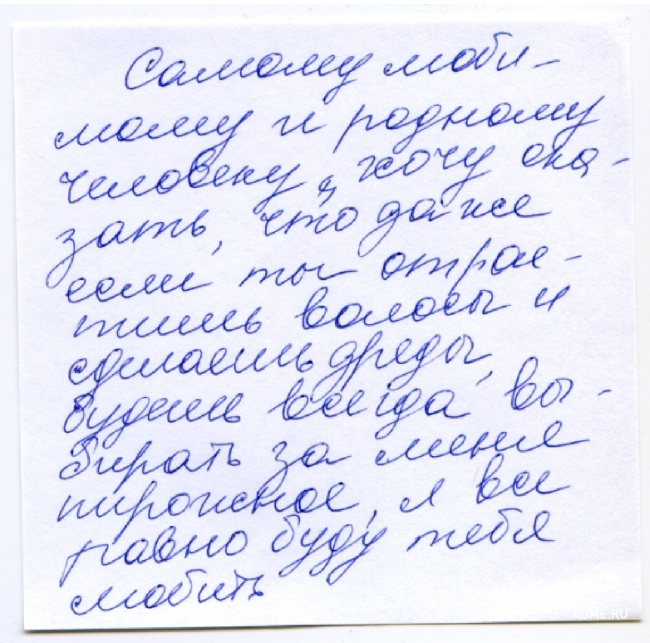 Самому люби-
мому и родному
человеку, хочу ска-
зать, что даже
если ты отрас-
тишь волосы и
сделаешь дреды,
будешь всегда вы-
бирать за меня
пирожное, я все
равно буду тебя
любить